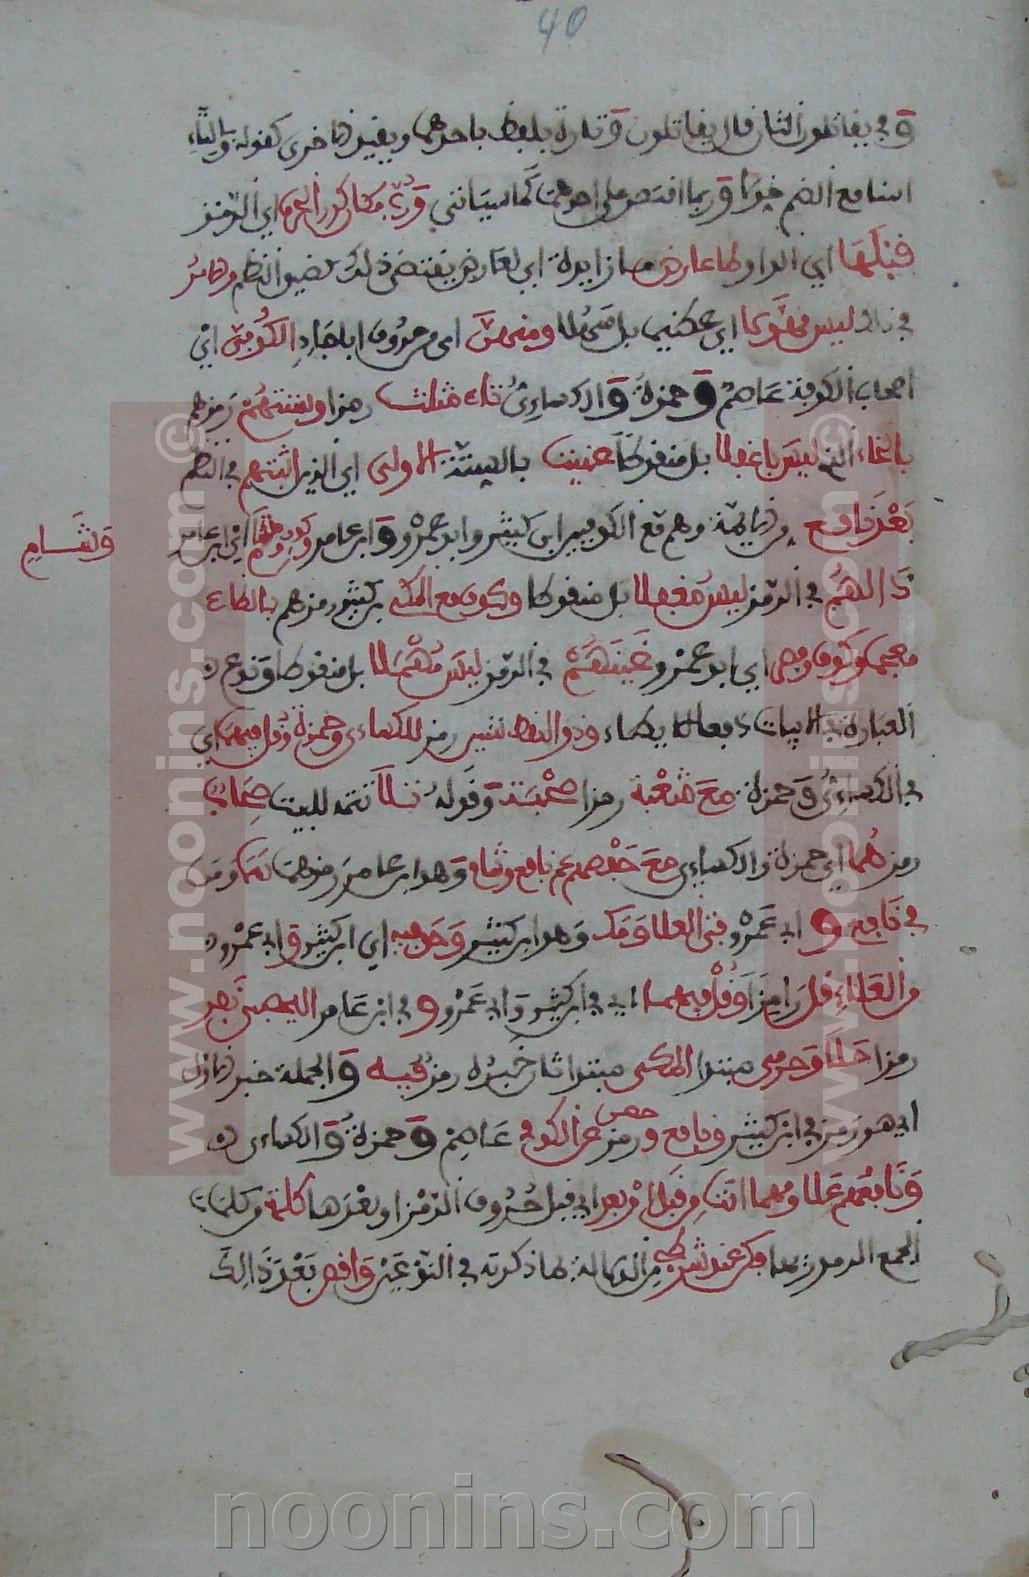 40
و في يقاتلون الثان قال يقاتلون و تارة يلفظ باحدهما ويقيد الاخرى كقوله وبالتاء
اسنا مع الضم خيرا و ربما اقتصر على احدهما كما سياتي ورب مكان كرر الحرف اي الرمز
قبلها اي الواو لما عارض مما زايدة اي لعارض يقتضي ذلك كضيق النظم والامر
في ذلك ليس مهولا اي عظيما بل سهلا ومنهن اي من حروف اباجاد للكوفي اي
اصحاب الكوفة عاصم و حمزة و الكساءي ثاء مثلث رمزا وستتهم رمزهم
بالخاء التي ليس باغفلا بل منقوطا عنيت بالستة الاولى اي الذين اثبتهم في النظم
بعد نافع و هم مع الكوفيين ابن كثير وابو عمرو و ابن عامر وكوف وشام اي ابن عامر
وشام
ذالهم في الرمز ليس مغفلا بل منقوطا وكوف مع المكي بن كثير رمزهم بالظاء
معجما وكوف وبصر اي ابو عمرو غينهم في الرمز ليس مهملا بل منقوطا و نوع
العبارة في الابيات دفعا للايطاء وذو النقط شين رمز للكساءي وحمزة وقل فيهما اي
في الكساءي و حمزة مع شعبة رمزا صحبة و قوله تلا تتمة للبيت صحاب
رمز هما اي حمزة والكساءي مع حفصهم عم نافع وشام و هو ابن عامر رمزهما سما و من
في نافع و ابي عمرو فتى العلا ومك وهو ابن كثير وحق فيه اي ابن كثير و ابي عمرو
بن العلاء قل رامزا وقل فيهما اي في ابن كثير وابي عمرو و في ابن عامر اليحصبي نفر
رمزا حلا وحرمي مبتدا المكي مبتدا ثان خبره رمز فيه و الجملة خبر الاول
اي هو رمز في ابن كثير و نافع و رمز حصن عن الكوفي عاصم و حمزة و الكساءي
و نافعهم علا ومهما اتت من قبل او بعد اي قبل حروف الرمز او بعدها كلمة من كلمات
الجمع المرموز بها فكن عند شرطي من الدلالة لما ذكرته في النوعين واقض بعد ذلك
www.noonins.com©
www.noonins.com©
noonins.com